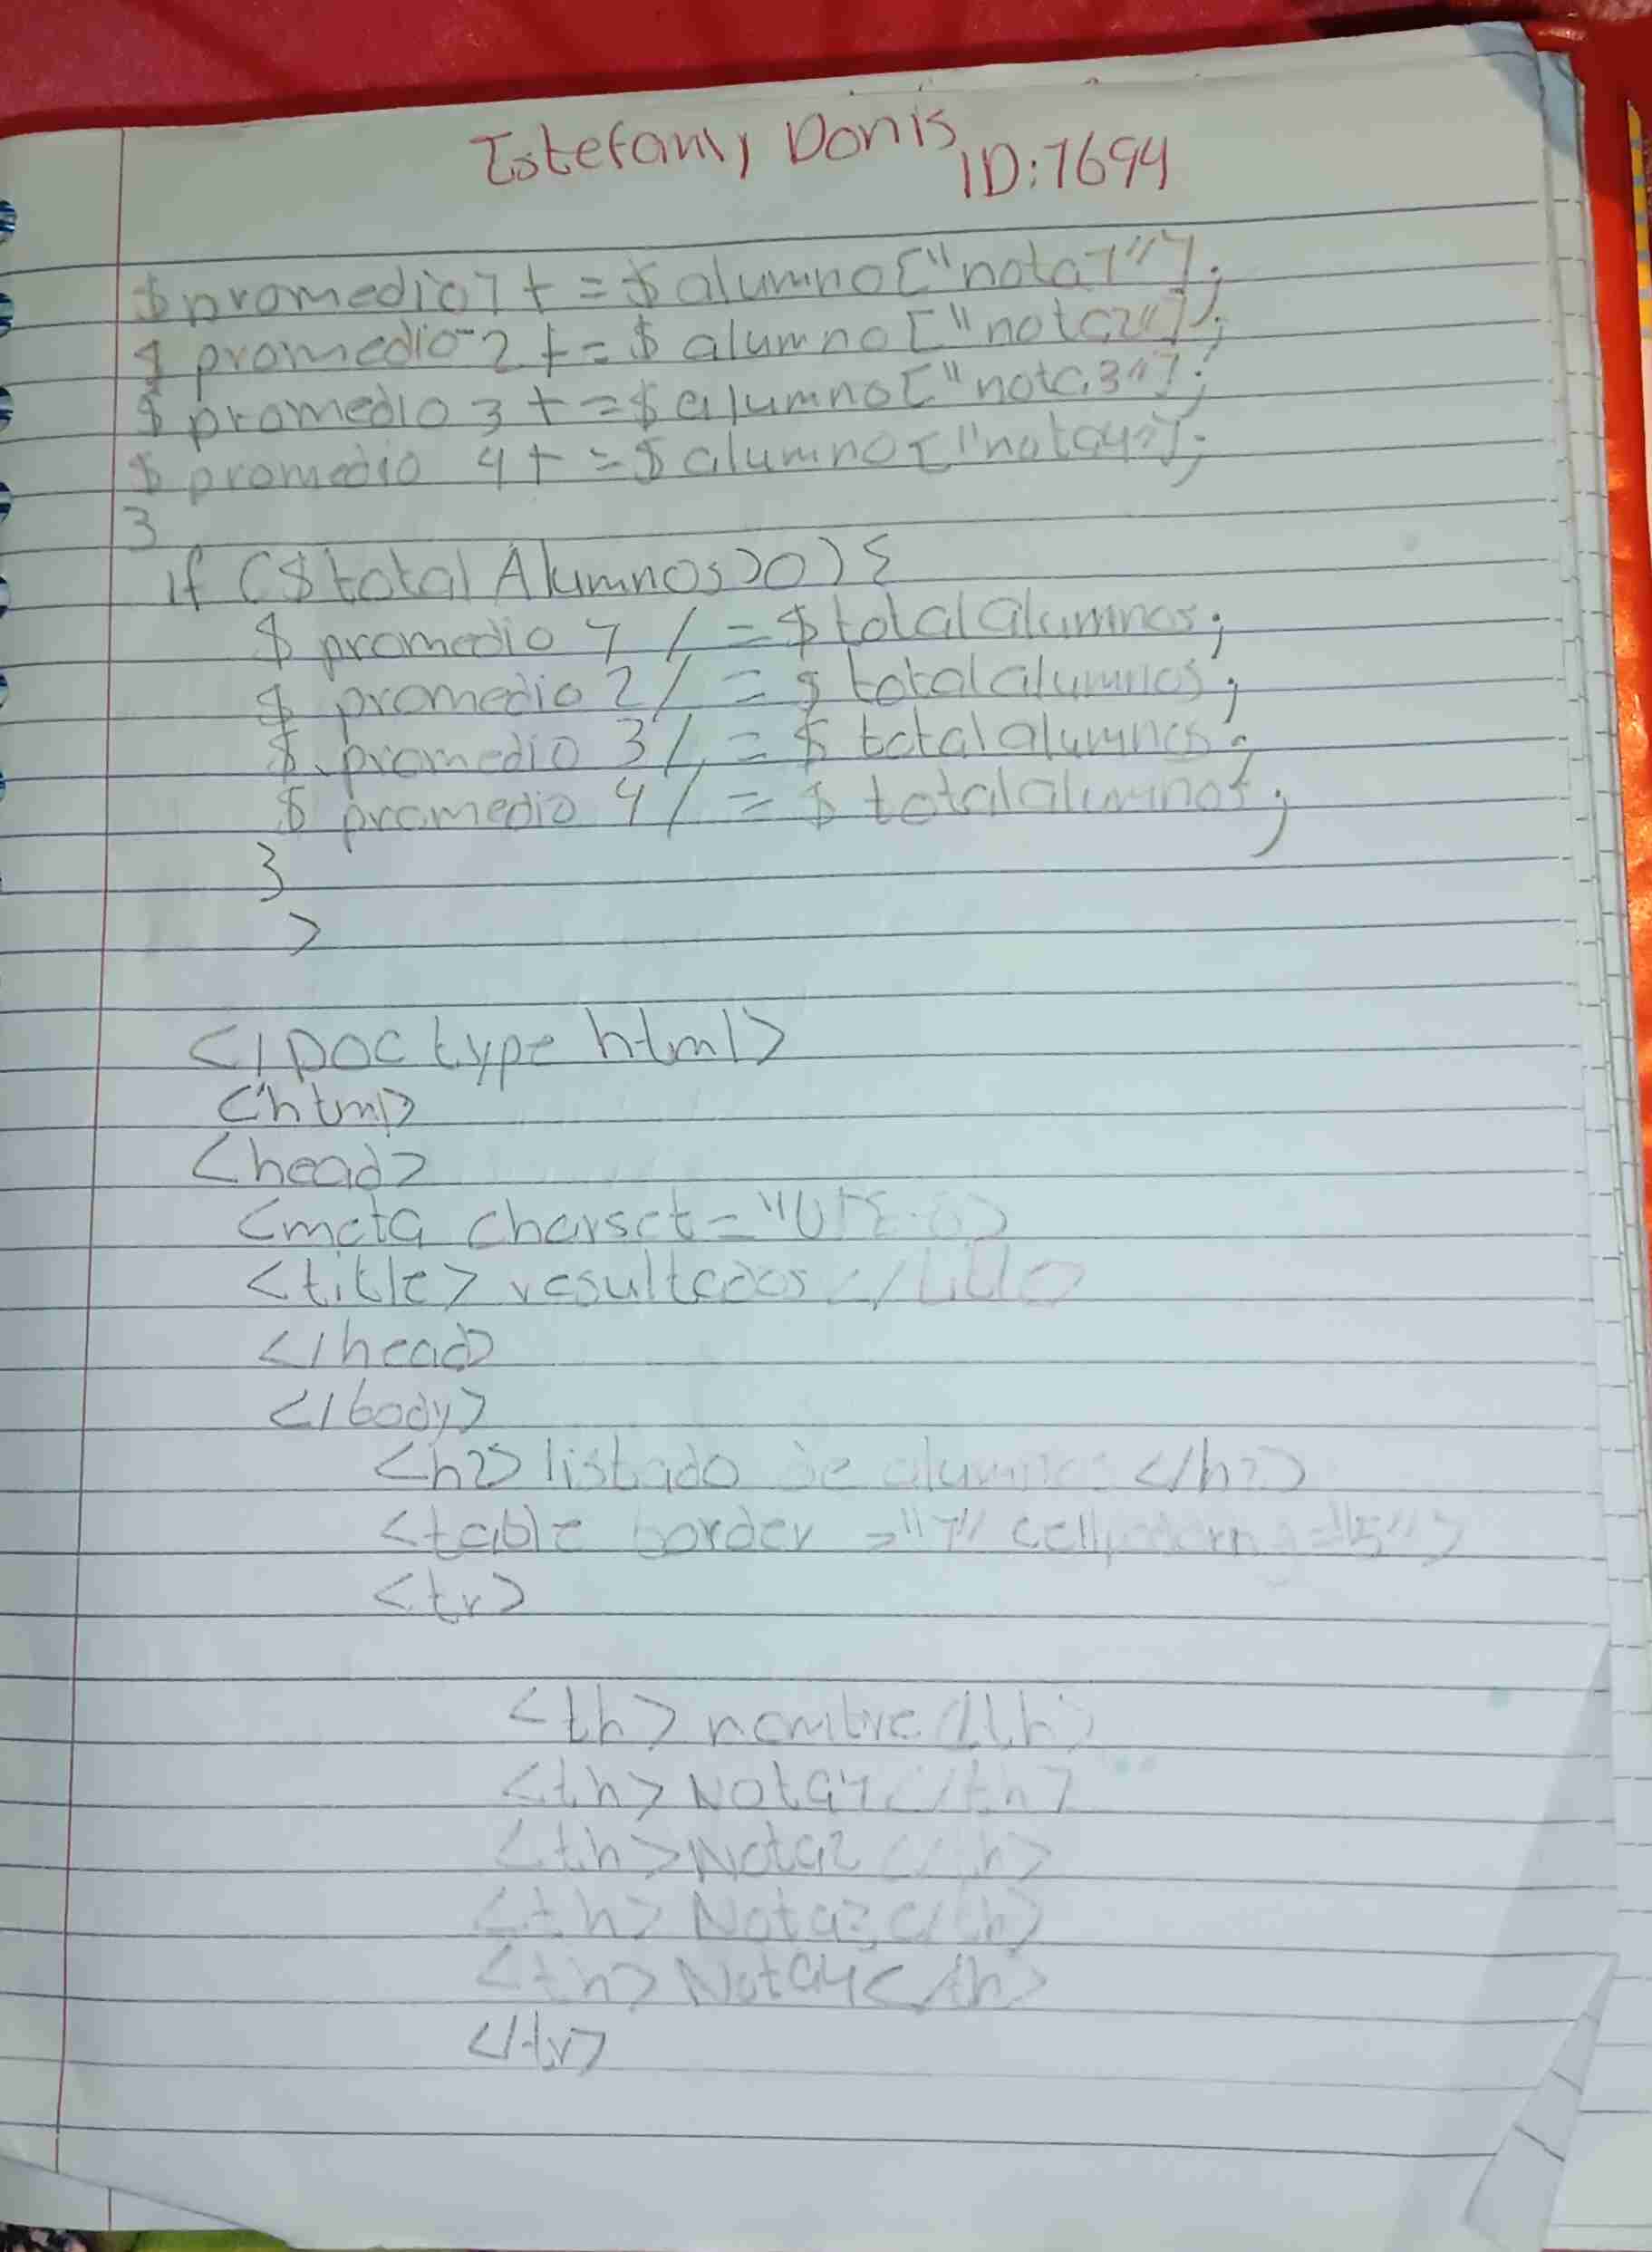 Estefany Donis
ID:1694
$promedio1+=$alumno["nota1"];
$promedio-2+=$alumno["nota2"];
$promedio 3+=$alumno["nota3"];
$promedio 4+=$alumno["nota4"];
}
if ($total Alumnos>0){
$promedio 1/=$totalalumnos;
$promedio 2/=$totalalumnos;
$promedio 3/=$totalalumnos;
$promedio 4/=$totalalumnos;
}
>
<!Doctype html>
<html>
<head>
<meta charset="UTF-8>
<title>resultados</title>
</head>
</body>
<h2>listado de alumnos</h2>
<table border="1" cellpadding="5">
<tr>
<th>nombre</th>
<th>Nota1</th>
<th>Nota2</th>
<th>Nota3</th>
<th>Nota4</th>
</tr>